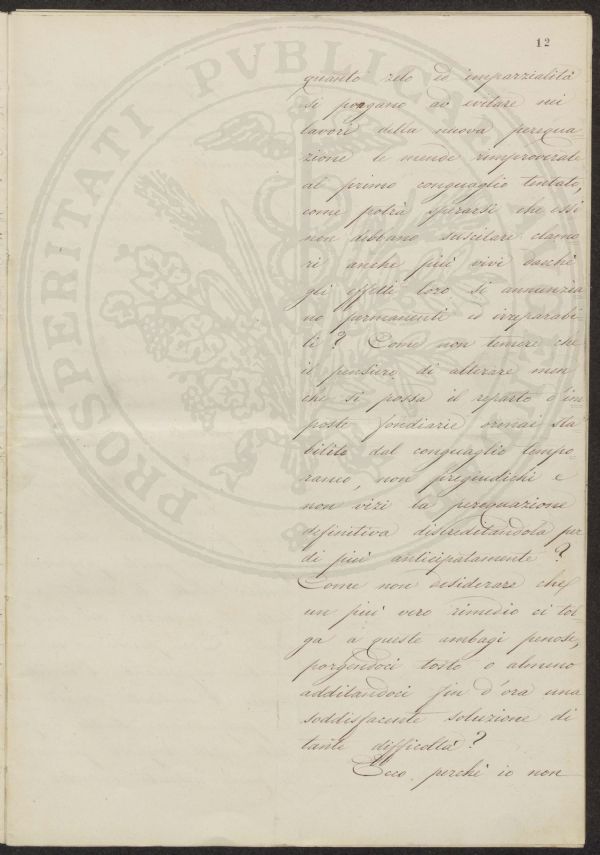 12
quanto zelo ed imparzialità
si pongano ad evitare nei
lavori della nuova perequa
zione le mende rimproverate
al primo conguaglio tentato,
come potrà sperarsi che essi
non debbano suscitare clamo
ri anche più vivi dacchè
gli effetti loro si annunzia
no permanenti ed irreparabi
li? Come non temere che
il pensiero di alterare men
che si possa il reparto d'im
poste fondiarie ormai sta
bilito dal conguaglio tempo-
raneo, non pregiudichi e
non vizi la perequazione
definitiva discreditandola per
di più anticipatamente?
Come non desiderare che
un più vero rimedio ci tol
ga a queste ambagi penose,
porgendoci tosto o almeno
additandoci fin d'ora una
soddisfacente soluzione di
tante difficoltà?
Ecco perchè io non
PROSPERITATI PVBLICAE